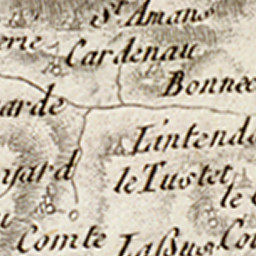 St Amans
erie
Cardenau
Bonnec
arde
Lintenda
yard
le Tustet
le C
Comte
Laßus
Cou